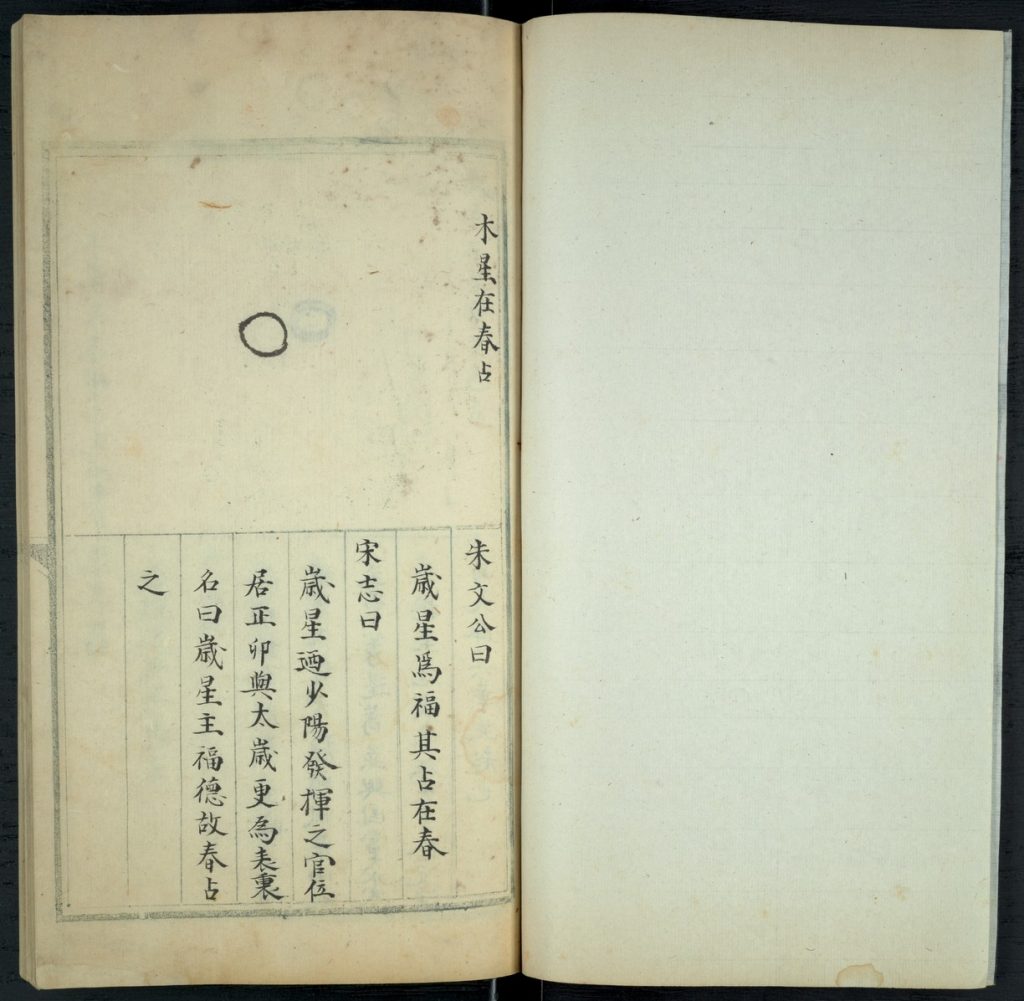 木星在春占
朱文公曰
歲星爲福其占在春
宋志曰
歲星迺少陽發揮之官位
居正卯與太歲更爲表裏
名曰歲星主福德故春占
之